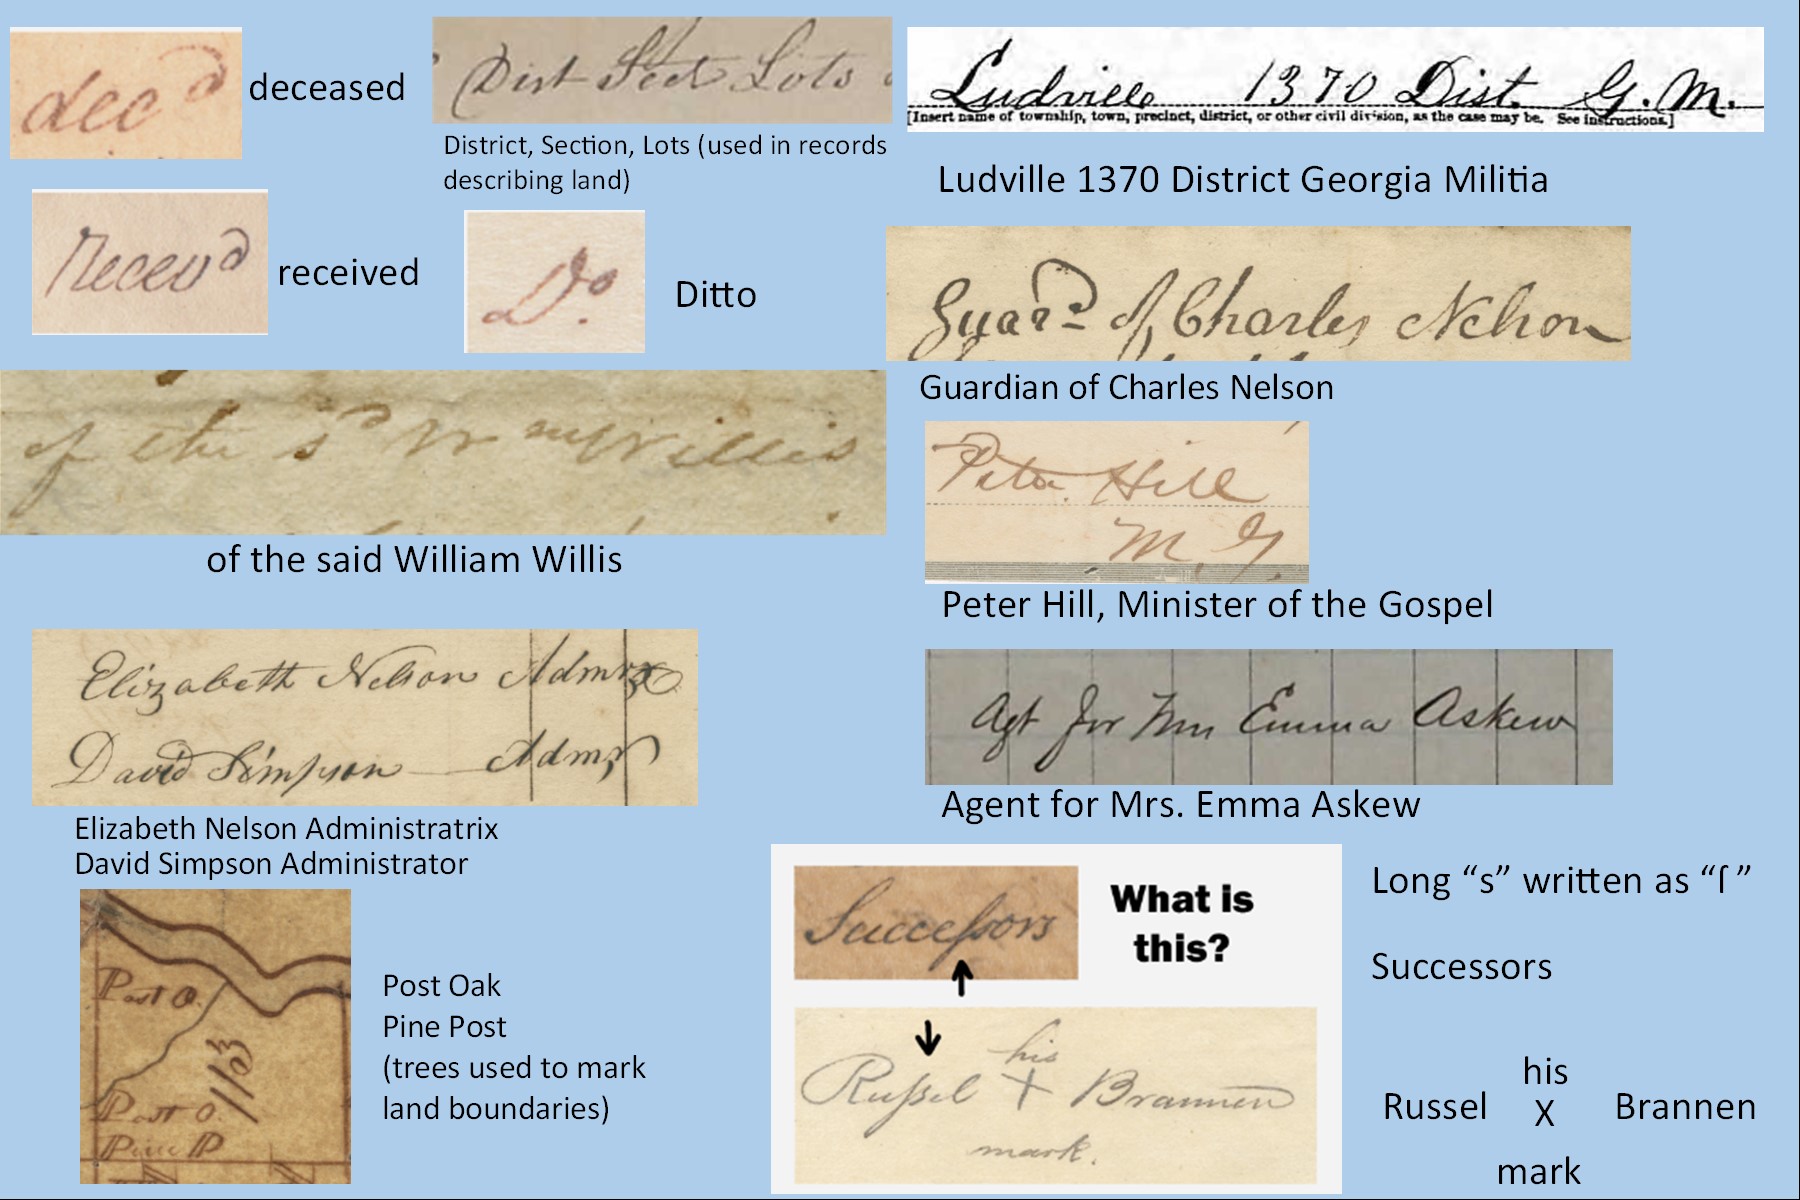 decd
deceased
Dist Sect Lots
District, Section, Lots (used in records
describing land)
Ludville 1370 Dist. G. M.
[Insert name of township, town, precinct, district, or other civil division, as the case may be. See instructions.]
Ludville 1370 District Georgia Militia
Recevd
received
Do.
Ditto
Guard. of Charles Nelson
Guardian of Charles Nelson
of the sd Wm Willis
of the said William Willis
Peter Hill
M. G.
Peter Hill, Minister of the Gospel
Elizabeth Nelson Admrx
David Simpson Admr
Elizabeth Nelson Administratrix
David Simpson Administrator
Agt for Mrs Emma Askew
Agent for Mrs. Emma Askew
Post O.
1153
Post O.
Pine P
Post Oak
Pine Post
(trees used to mark
land boundaries)
Succeſsors
What is
this?
his
Ruſsel X Brannen
mark.
Long “s” written as “ſ ”
Successors
his
Russel X Brannen
mark